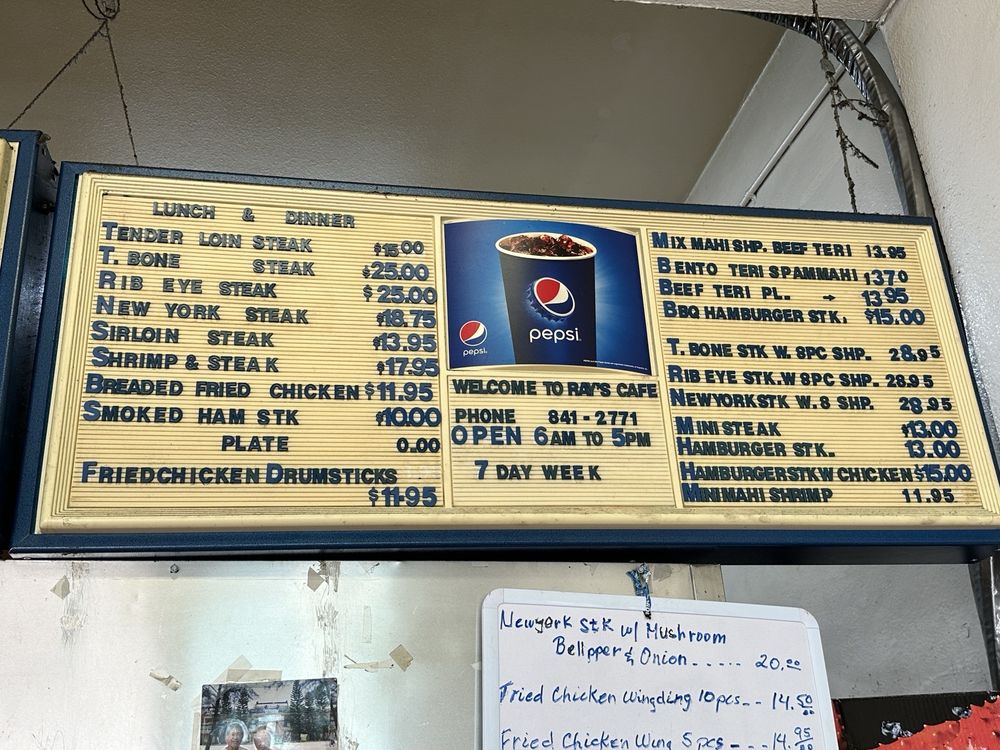 LUNCH & DINNER
TENDER LOIN STEAK $15.00
T. BONE STEAK $25.00
RIB EYE STEAK $25.00
NEW YORK STEAK $18.75
SIRLOIN STEAK $13.95
SHRIMP & STEAK $17.95
BREADED FRIED CHICKEN $11.95
SMOKED HAM STK $10.00
PLATE 0.00
FRIEDCHICKEN DRUMSTICKS
$11.95
pepsi
pepsi.
WELCOME TO RAY'S CAFE
PHONE 841-2771
OPEN 6AM TO 5PM
7 DAY WEEK
MIX MAHI SHP. BEEF TERI 13.95
BENTO TERI SPAMMAHI $1370
BEEF TERI PL. → 13.95
BBQ HAMBURGER STK. $15.00
T. BONE STK W. 8PC SHP. 28.95
RIB EYE STK.W 8PC SHP. 28.95
NEWYORKSTK W. 8 SHP. 28.95
MINI STEAK $13.00
HAMBURGER STK. 13.00
HAMBURGERSTKW CHICKEN $15.00
MINIMAHI SHRIMP 11.95
Newyork Stk w/ Mushroom
Bellpper & Onion ----- 20.00
Fried Chicken Wingding 10pcs-- 14.50
Fried Chicken Wing 5pcs --- 14.95